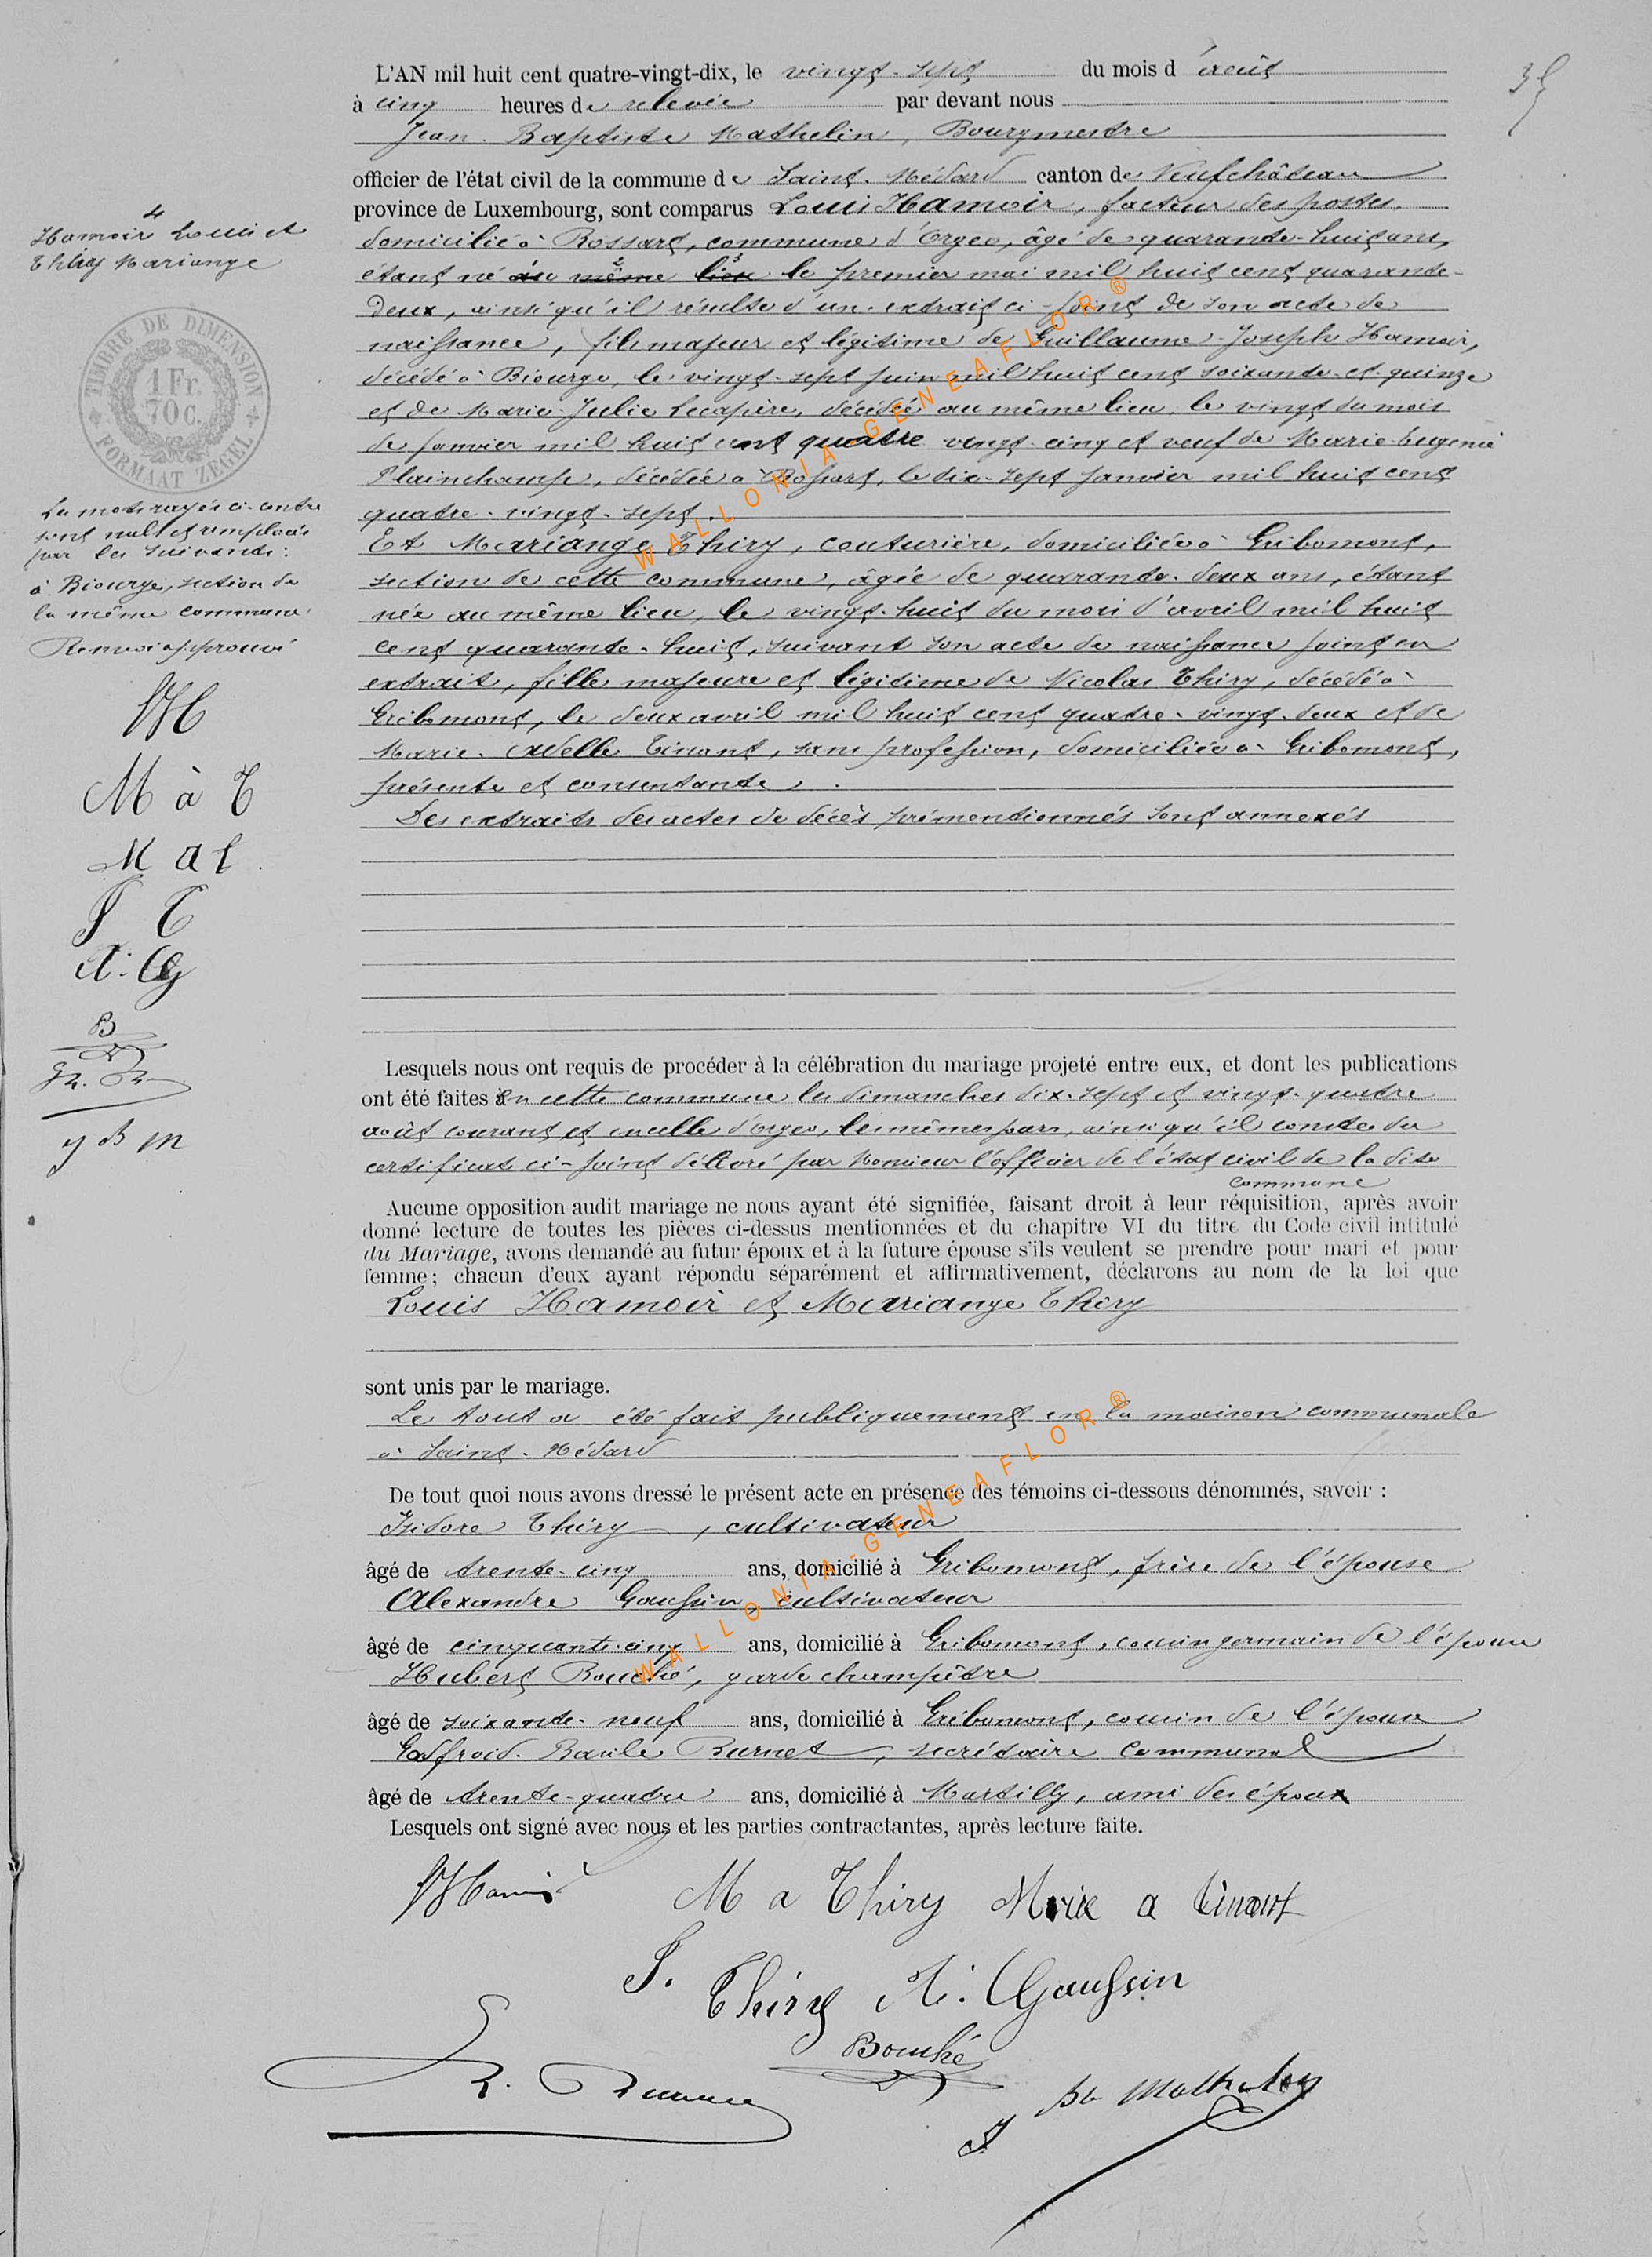 L'AN mil huit cent quatre-vingt-dix, le vingt-sept du mois d'août
à cinq heures de relevée par devant nous
Jean Baptiste Mathelin, Bourgmestre
officier de l'état civil de la commune de Saint-Médard canton de Neufchâteau
province de Luxembourg, sont comparus Louis Hamoir, facteur des postes,
domicilié à Rossart, commune d'Orgeo, âgé de quarante-huit ans,
étant né au même lieu le premier mai mil huit cent quarante-
deux, ainsi qu'il résulte d'un extrait ci-joint de son acte de
naissance, fils majeur et légitime de Guillaume-Joseph Hamoir,
décédé à Biourge, le vingt-sept juin mil huit cent soixante-et-quinze
et de Marie-Julie Lecapère, décédée au même lieu, le vingt du mois
de janvier mil huit cent quatre vingt-cinq et veuf de Marie-Eugénie
Plainchamp, décédée à Rossart, le dix-sept janvier mil huit cent
quatre-vingt-sept.
Et Mariange Thiry, couturière, domiciliée à Gribomont,
section de cette commune, âgée de quarante-deux ans, étant
née au même lieu, le vingt-huit du mois d'avril mil huit
cent quarante-huit, suivant son acte de naissance joint en
extrait, fille majeure et légitime de Nicolas Thiry, décédé à
Gribomont, le deux avril mil huit cent quatre-vingt-deux et de
Marie-Adelle Tinant, sans profession, domiciliée à Gribomont,
présente et consentante.
Des extraits des actes de décès prémentionnés sont annexés
35
4
Hamoir Louis et
Thiry Mariange
TIMBRE DE DIMENSION
1 Fr.
70 C.
FORMAAT ZEGEL
Les mots rayés ci-contre
sont nuls et remplacés
par les suivants:
à Biourge, section de
la même commune
Renvoi approuvé
LH
M à T
M a t
J T
A. G
B
G. R.
J B M
Lesquels nous ont requis de procéder à la célébration du mariage projeté entre eux, et dont les publications
ont été faites en cette commune les dimanches dix-sept et vingt-quatre
août courant et en celle d'Orgeo, les mêmes jours, ainsi qu'il conste du
certificat ci-joint délivré par Monsieur l'officier de l'état civil de la dite
commune
Aucune opposition audit mariage ne nous ayant été signifiée, faisant droit à leur réquisition, après avoir
donné lecture de toutes les pièces ci-dessus mentionnées et du chapitre VI du titre du Code civil intitulé
du Mariage, avons demandé au futur époux et à la future épouse s'ils veulent se prendre pour mari et pour
femme; chacun d'eux ayant répondu séparément et affirmativement, déclarons au nom de la loi que
Louis Hamoir et Mariange Thiry
sont unis par le mariage.
Le tout a été fait publiquement en la maison communale
à Saint-Médard
De tout quoi nous avons dressé le présent acte en présence des témoins ci-dessous dénommés, savoir :
Isidore Thiry, cultivateur
âgé de trente-cinq ans, domicilié à Gribomont, frère de l'épouse
Alexandre Gaussin, cultivateur
âgé de cinquante-cinq ans, domicilié à Gribomont, cousin germain de l'épouse
Hubert Bouché, garde champêtre
âgé de soixante-neuf ans, domicilié à Gribomont, cousin de l'épouse
Godfroid Burnet, secrétaire communal
âgé de trente-quatre ans, domicilié à Martilly, ami des époux
Lesquels ont signé avec nous et les parties contractantes, après lecture faite.
LHamoir M a Thiry Marie a tinant
J. Thiry A. Gaussin
Bouché
J Bte Mathelin
WALLONIA-GENEAFLOR®
WALLONIA-GENEAFLOR®